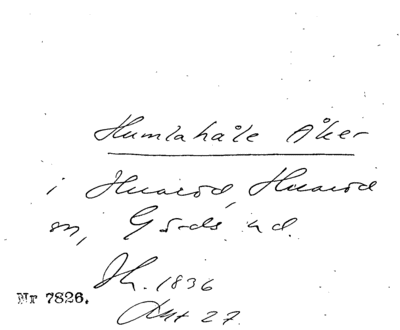 Humlahåle Åker
i Huaröd, Huaröd
sn, Gärds hd.
Lh. 1836
Akt 27.
Nr 7826.